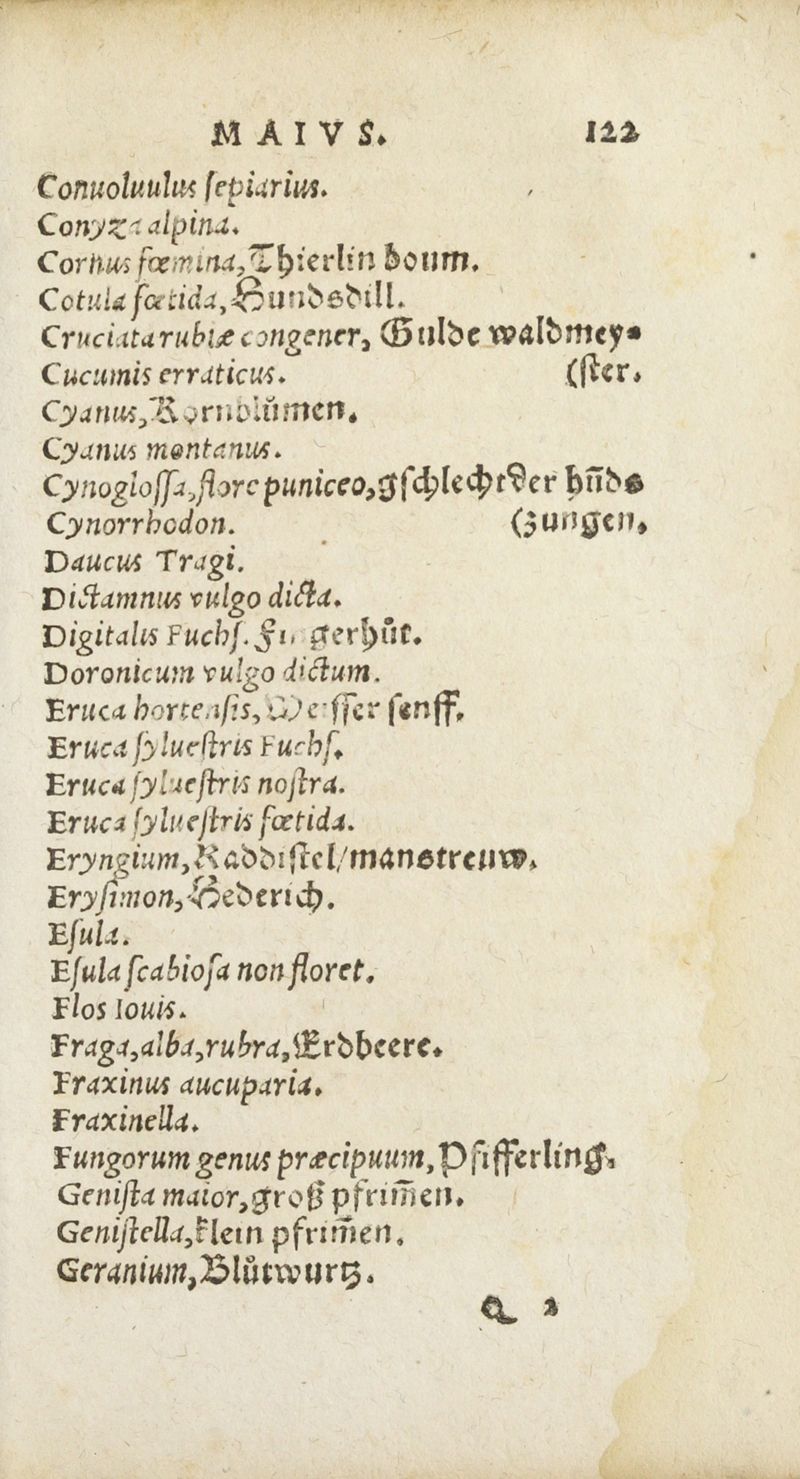 MAIVS. 122
Conuoluulus ſepiarius.
Conyza alpina.
Cornus fœmina, Thierlin boum.
Cotula fœtida, Hundsdill.
Cruciata rubiæ congener, Gulde waldmey⸗
Cucumis erraticus. (ſter.
Cyanus, Kornblůmen.
Cyanus montanus.
Cynogloſſa, flore puniceo, gſchlecht der hūds
Cynorrhodon. (zungen.
Daucus Tragi.
Dictamnus vulgo dicta.
Digitalis Fuchſ. gerhůt.
Doronicum vulgo dictum.
Eruca hortenſis, ſenff.
Eruca ſylueſtris Fuchſ.
Eruca ſylueſtris noſtra.
Eruca ſylueſtris fœtida.
Eryngium, Raddiſtel/manstreuw.
Eryſimon, Hederich.
Eſula.
Eſula ſcabioſa non floret.
Flos Iouis.
Fraga, alba, rubra, Erdbeere.
Fraxinus aucuparia.
Fraxinella.
Fungorum genus præcipuum, Pfifferling.
Geniſta maior, groß pfrim̄en.
Geniſtella, klein pfrim̄en.
Geranium, Blůtwurtz.
Q 2